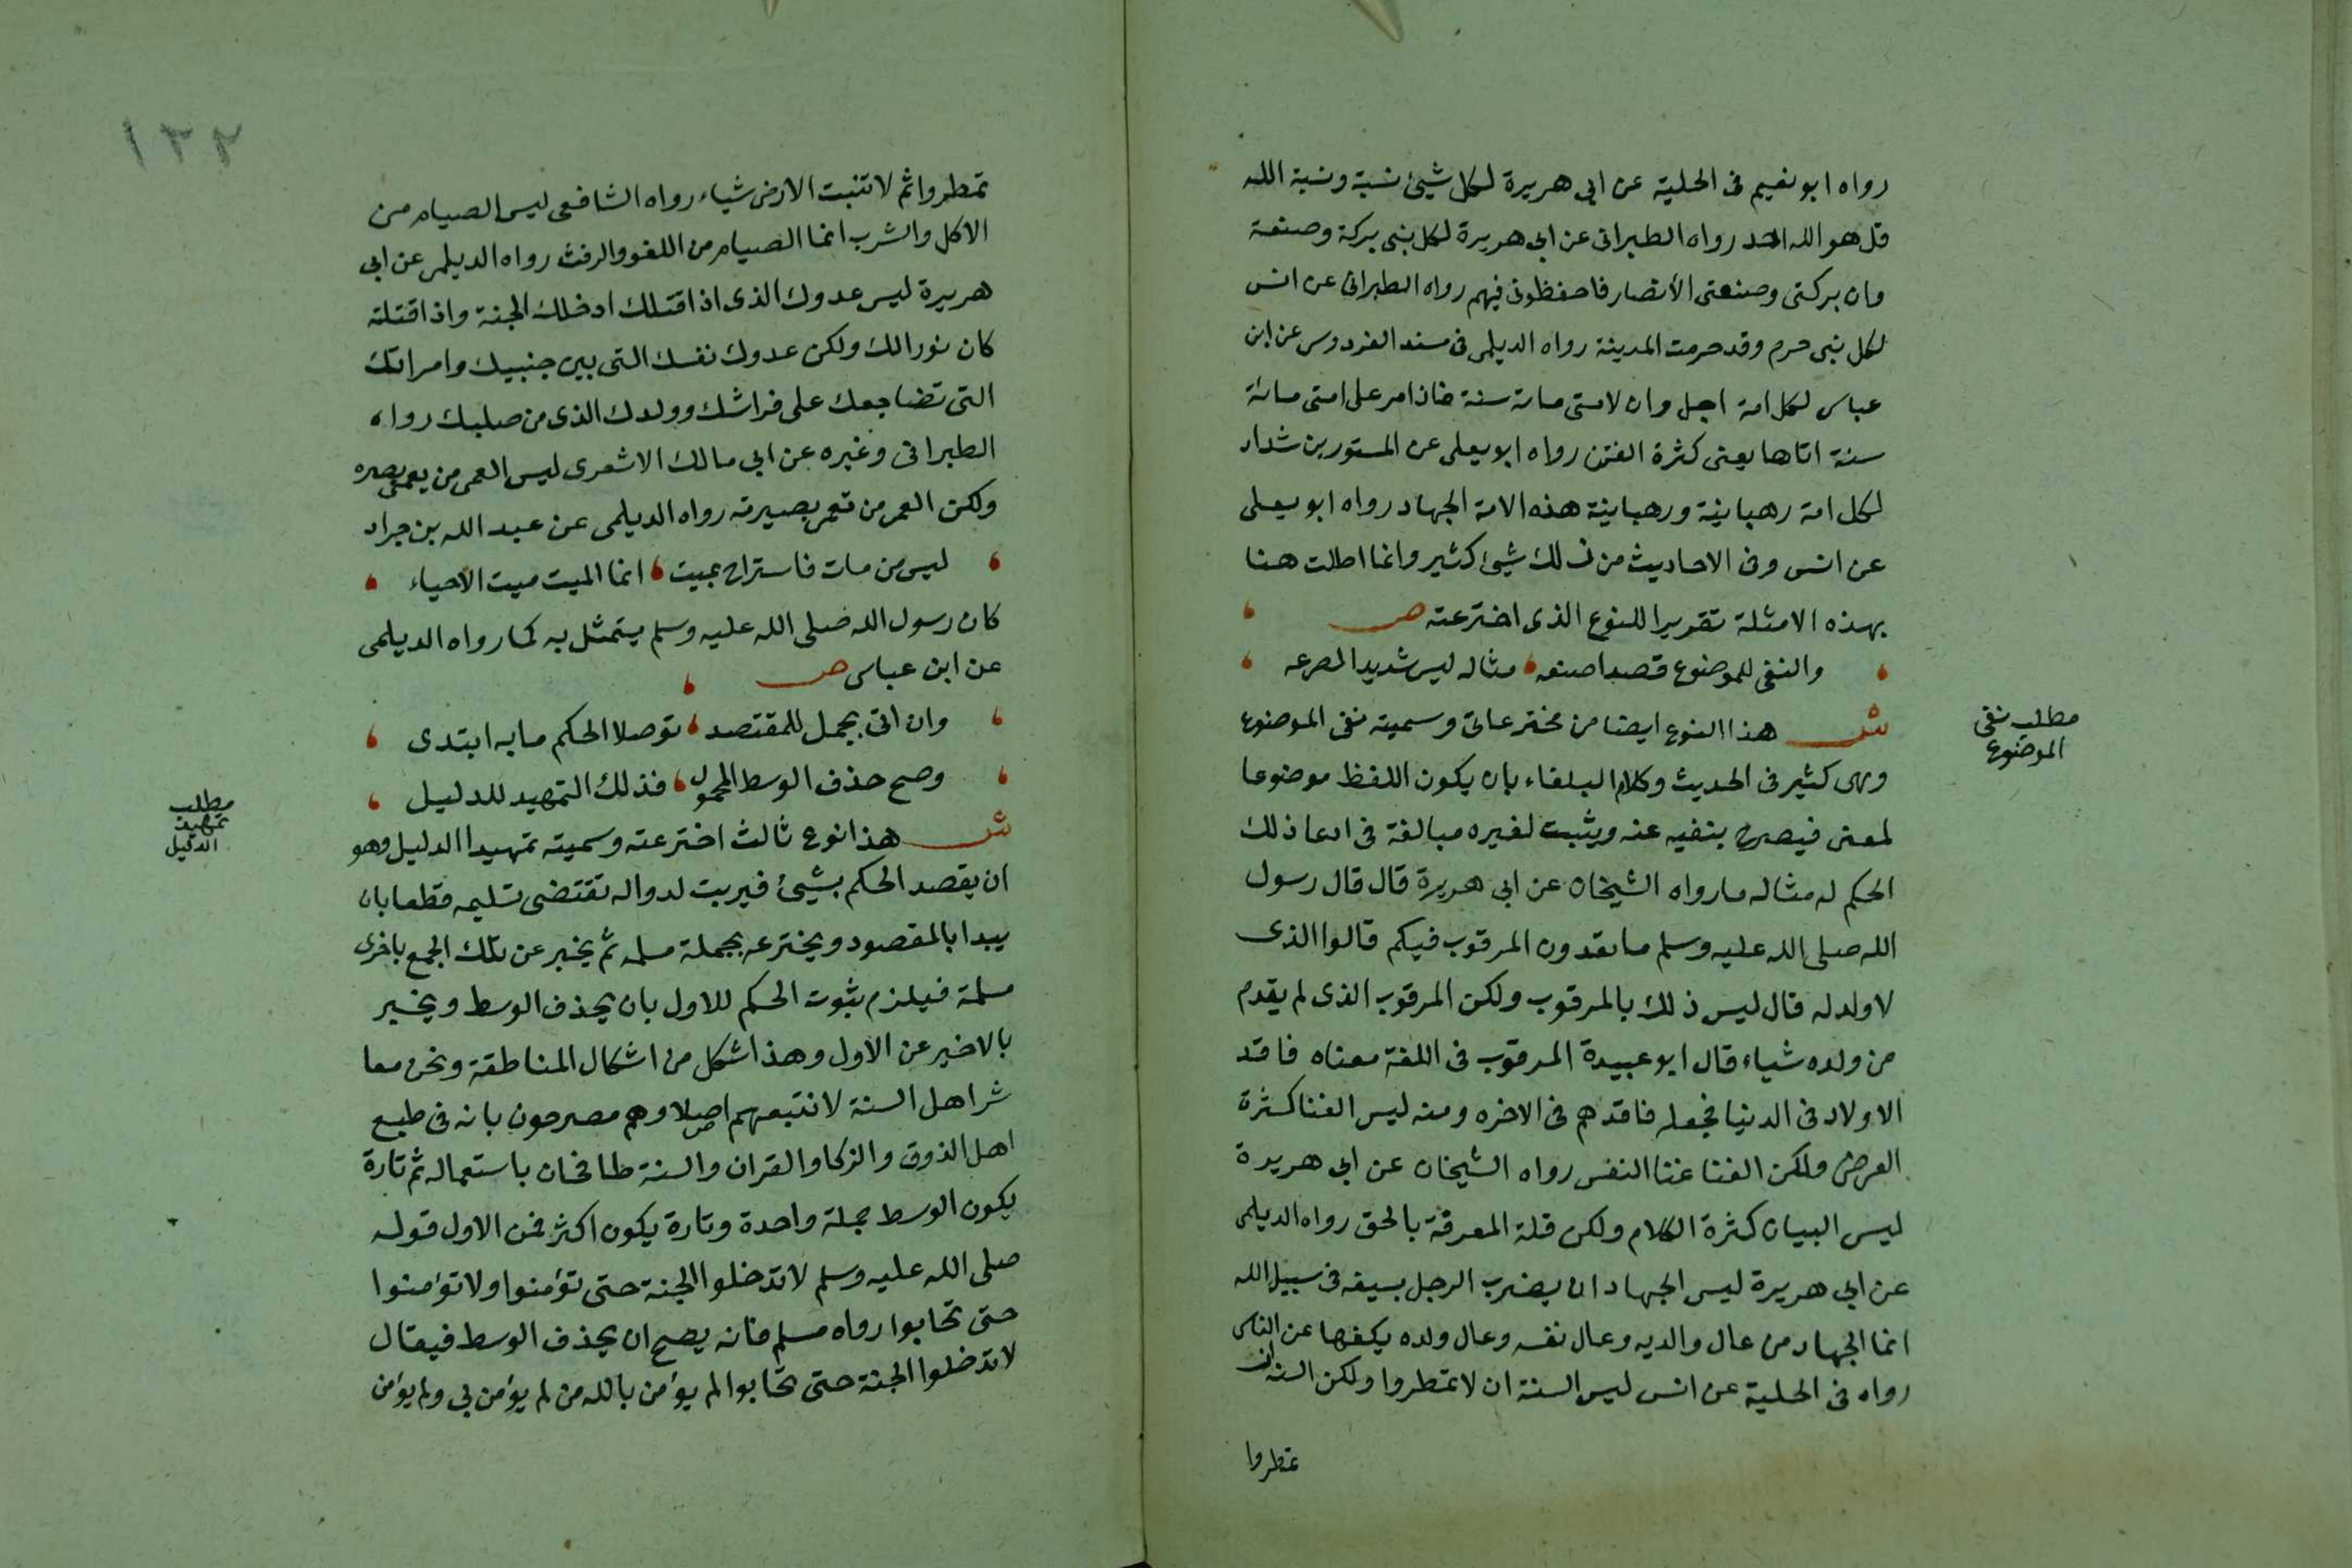 رواه ابو نعيم فى الحلية عن ابى هريرة لكل شيئ نسبة ونسبة الله
قل هو الله احد رواه الطبرانى عن ابى هريرة لكل بنى بركة وصنعة
وان بركتى وصنعتى الأنصار فاحفظونى فيهم رواه الطبرانى عن انس
لكل بنى حرم وقد حرمت المدينة رواه الديلمى فى مسند الفردوس عن ابن
عباس لكل امة اجل وان لامتى مائة سنة فاذا مر على امتى مائة
سنة اتاها يعنى كثرة الفتن رواه ابو يعلى عن المستور بن شداد
لكل امة رهبانية ورهبانية هذه الامة الجهاد رواه ابو يعلى
عن انس وفى الاحاديث من ذلك شيئ كثير وانما اطلت هنا
بهذه الامثلة تقريرا للنوع الذى اخترعته ص
والنفى للموضوع قصدا صنعه مثاله ليس شديد الصرعه
مطلب نفى
الموضوع
ش هذا النوع ايضا من مخترعاتى وسميته نفى الموضوع
وهى كثير فى الحديث وكلام البلغاء بان يكون اللفظ موضوعا
لمعنى فيصرح بنفيه عنه ويثبت لغيره مبالغة فى ادعا ذلك
الحكم له مثاله ما رواه الشيخان عن ابى هريرة قال قال رسول
الله صلى الله عليه وسلم ما تعدون المرقوب فيكم قالوا الذى
لا ولد له قال ليس ذلك بالمرقوب ولكن المرقوب الذى لم يقدم
من ولده شياء قال ابو عبيدة المرقوب فى اللغة معناه فاقد
الاولاد فى الدنيا فجعله فاقدهم فى الاخره ومنه ليس الغنا كثرة
العرض ولكن الغنا غنا النفس رواه الشيخان عن ابى هريرة
ليس البيان كثرة الكلام ولكن قلة المعرفة بالحق رواه الديلمى
عن ابى هريرة ليس الجهاد ان يضرب الرجل بسيفه فى سبيل الله
انما الجهاد من عال والديه وعال نفسه وعال ولده يكفها عن الناس
رواه فى الحلية عن انس ليس السنة ان لا تمطروا ولكن السنة ان
تمطروا
١٣٢
تمطروا ثم لا تنبت الارض شياء رواه الشافعى ليس الصيام من
الاكل والشرب انما الصيام من اللغو والرفث رواه الديلمى عن ابى
هريرة ليس عدوك الذى اذا قتلك ادخلك الجنة واذا قتلته
كان نورا لك ولكن عدوك نفسك التى بين جنبيك وامراتك
التى تضاجعك على فراشك وولدك الذى من صلبك رواه
الطبرانى وغيره عن ابى مالك الاشعرى ليس العمى من يعمى بصره
ولكن العمى من تعمى بصيرته رواه الديلمى عن عبد الله بن جراد
ليس من مات فاستراح بميت انما الميت ميت الاحياء
كان رسول الله صلى الله عليه وسلم يتمثل به كما رواه الديلمى
عن ابن عباس ص
وان اتى بجمل للمقتصد توصلا الحكم ما به ابتدى
وصح حذف الوسط المحمول فذلك التمهيد للدليل
مطلب
تمهيد
الدليل
ش هذا نوع ثالث اخترعته وسميته تمهيدا الدليل وهو
ان يقصد الحكم بشيئ فيربت لدواله تقتضى تسليمه قطعا بان
يبدا بالمقصود ويخترعه بجملة مسلمه ثم يخبر عن تلك الجمع باخرى
مسلمة فيلزم بثوت الحكم للاول بان يحذف الوسط ويخبر
بالاخير عن الاول وهذا شكل من اشكال المناطقة ونحن معا
شر اهل السنة لا نتبعهم اصلا وهم مصرحون بانه فى طبع
اهل الذوق والزكا والقران والسنة طافخان باستعماله ثم تارة
يكون الوسط جملة واحدة وتارة يكون اكثر فمن الاول قوله
صلى الله عليه وسلم لا تدخلوا الجنة حتى تؤمنوا ولا تؤمنوا
حتى تحابوا رواه مسلم فانه يصح ان يحذف الوسط فيقال
لا تدخلوا الجنة حتى تحابوا لم يؤمن بالله من لم يؤمن بى ولم يؤمن